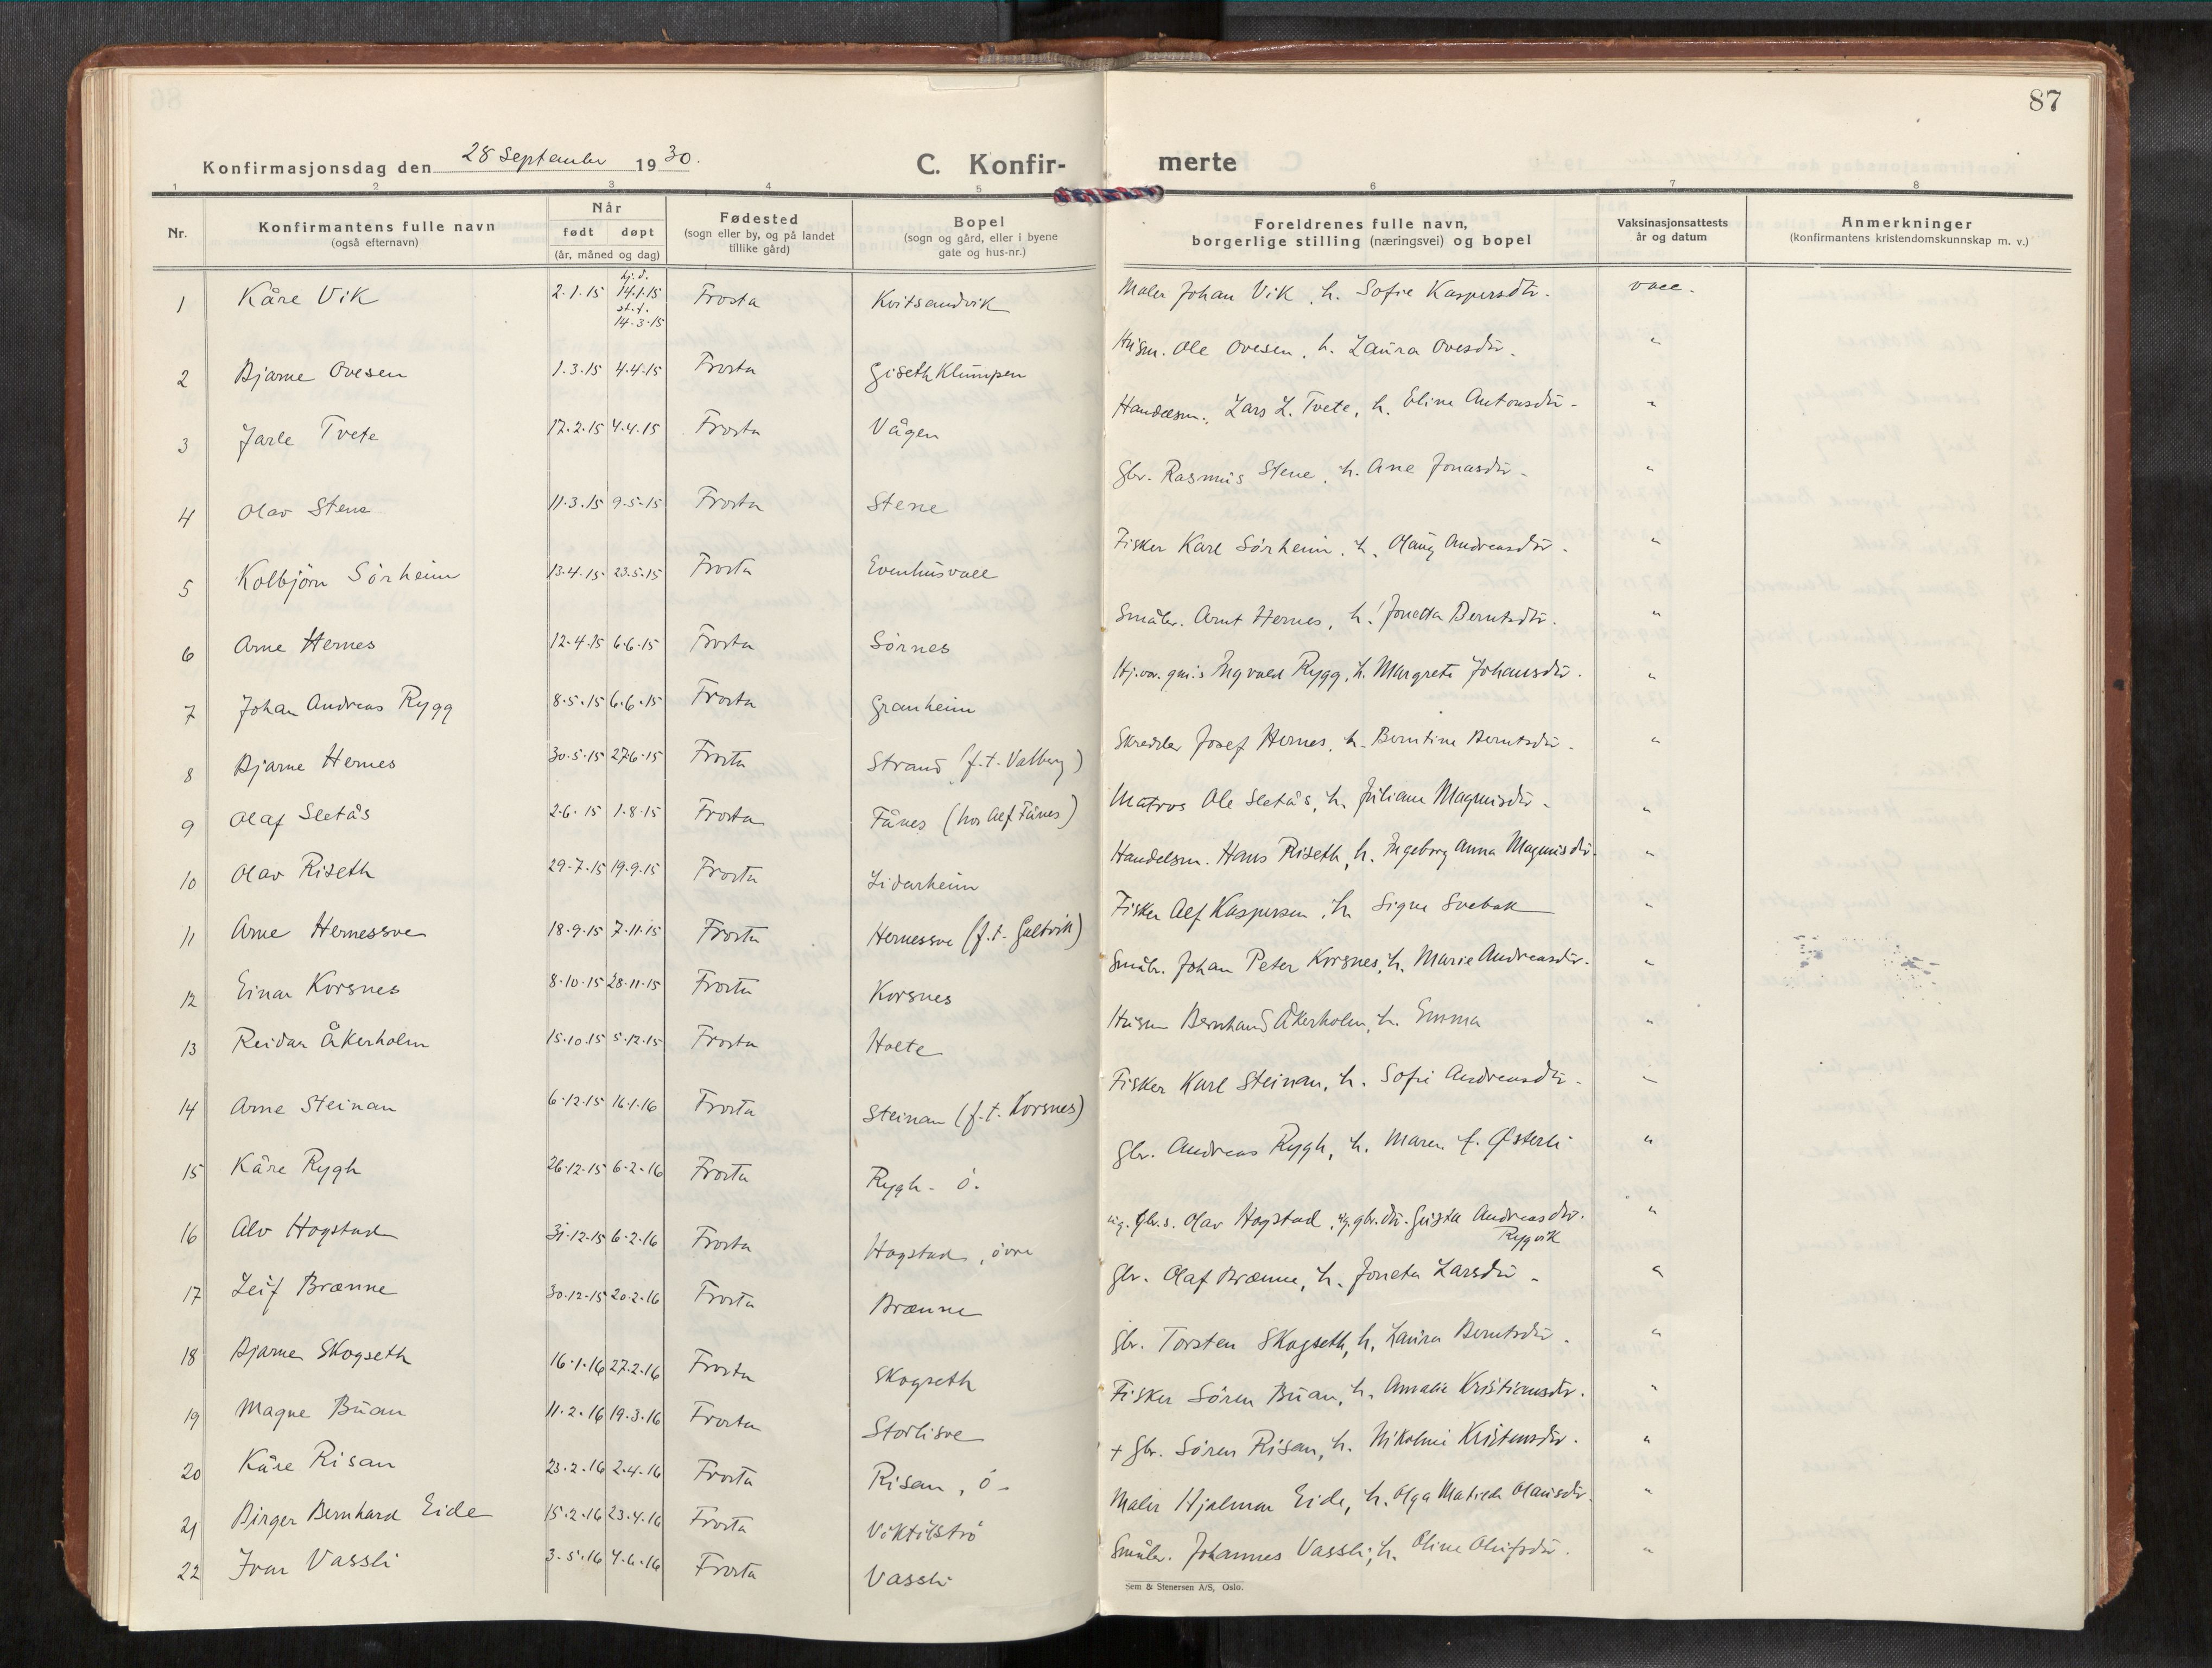 87
Konfirmasjonsdag den 28 September 1930.
C. Konfir- merte
1 2 3 4 5 6 7 8
Nr.
Konfirmantens fulle navn
(også efternavn)
Når
født døpt
(år, måned og dag)
Fødested
(sogn eller by, og på landet
tillike gård)
Bopel
(sogn og gård, eller i byene
gate og hus-nr.)
Foreldrenes fulle navn,
borgerlige stilling (næringsvei) og bopel
Vaksinasjonsattests
år og datum
Anmerkninger
(konfirmantens kristendomskunnskap m. v.)
1 Kåre Vik 2.1.15 hj.d. 14.1.15 st.f. 14.3.15 Frosta Kvitsandvik Maler Johan Vik, h. Sofie Kaspersdtr. vacc.
2 Bjarne Ovesen 1.3.15 4.4.15 Frosta Giseth Klumpen Husm. Ole Ovesen, h. Laura Ovesdtr. "
3 Jarle Tvete 17.2.15 4.4.15 Frosta Vågen Handelsm. Lars L. Tvete, h. Eline Antonsdtr. "
4 Olav Stene 11.3.15 9.5.15 Frosta Stene Gbr. Rasmus Stene, h. Ane Jonasdtr. "
5 Kolbjörn Sörheim 13.4.15 23.5.15 Frosta Evenhusvall Fisker Karl Sörheim, h. Olaug Andreasdtr. "
6 Arne Hernes 12.4.15 6.6.15 Frosta Sörnes Småbr. Arnt Hernes, h. Jonetta Berntsdtr. "
7 Johan Andreas Rygg 8.5.15 6.6.15 Frosta Granheim Hj.vær. gm.s Ingvald Rygg, h. Margrete Johansdtr. "
8 Bjarne Hernes 30.5.15 27.6.15 Frosta Strand (f.t. Valberg) Skredder Josef Hernes, h. Berntine Berntsdtr. "
9 Olaf Sletås 2.6.15 1.8.15 Frosta Fånes (hos Alf Fånes) Matros Ole Sletås, h. Juliane Magnusdtr. "
10 Olav Riseth 29.7.15 19.9.15 Frosta Lidarheim Handelsm. Hans Riseth, h. Ingeborg Anna Magnusdtr. "
11 Arne Hernessve 18.9.15 7.11.15 Frosta Hernessve (f.t. Galtvik) Fisker Alf Kaspersen, h. Signe Svebak "
12 Einar Korsnes 8.10.15 28.11.15 Frosta Korsnes Småbr. Johan Peter Korsnes, h. Marie Andreasdtr. "
13 Reidar Åkerholm 15.10.15 5.12.15 Frosta Holte Husm Bernhard Åkerholm, h. Emma "
14 Arne Steinan 6.12.15 16.1.16 Frosta Steinan (f.t. Korsnes) Fisker Karl Steinan, h. Sofie Andreasdtr. "
15 Kåre Rygh 26.12.15 6.2.16 Frosta Rygh. ö. Gbr. Andreas Rygh, h. Maren f. Østerli "
16 Alv Hogstad 31.12.15 6.2.16 Frosta Hogstad, övre ug. Gbr.s. Olav Hogstad, ug. gbr.dtr. Gusta Andreasdtr. Rygvik "
17 Leif Brænne 30.12.15 20.2.16 Frosta Brænne Gbr. Olaf Brænne, h. Joneta Larsdtr. "
18 Bjarne Skogseth 16.1.16 27.2.16 Frosta Skogseth Gbr. Torsten Skogseth, h. Laura Berntsdtr. "
19 Magne Buan 11.2.16 19.3.16 Frosta Storlisve Fisker Sören Buan, h. Amalie Kristiansdtr. "
20 Kåre Risan 23.2.16 2.4.16 Frosta Risan, ö. + Gbr. Sören Risan, h. Nikoline Kristensdtr. "
21 Birger Bernhard Eide 15.2.16 23.4.16 Frosta Viktilströ Maler Hjalmar Eide, h. Olga Matilde Olausdtr. "
22 Ivar Vassli 3.5.16 4.6.16 Frosta Vassli Småbr. Johannes Vassli, h. Oline Olufsdtr. "
Sem & Stenersen A/S, Oslo.